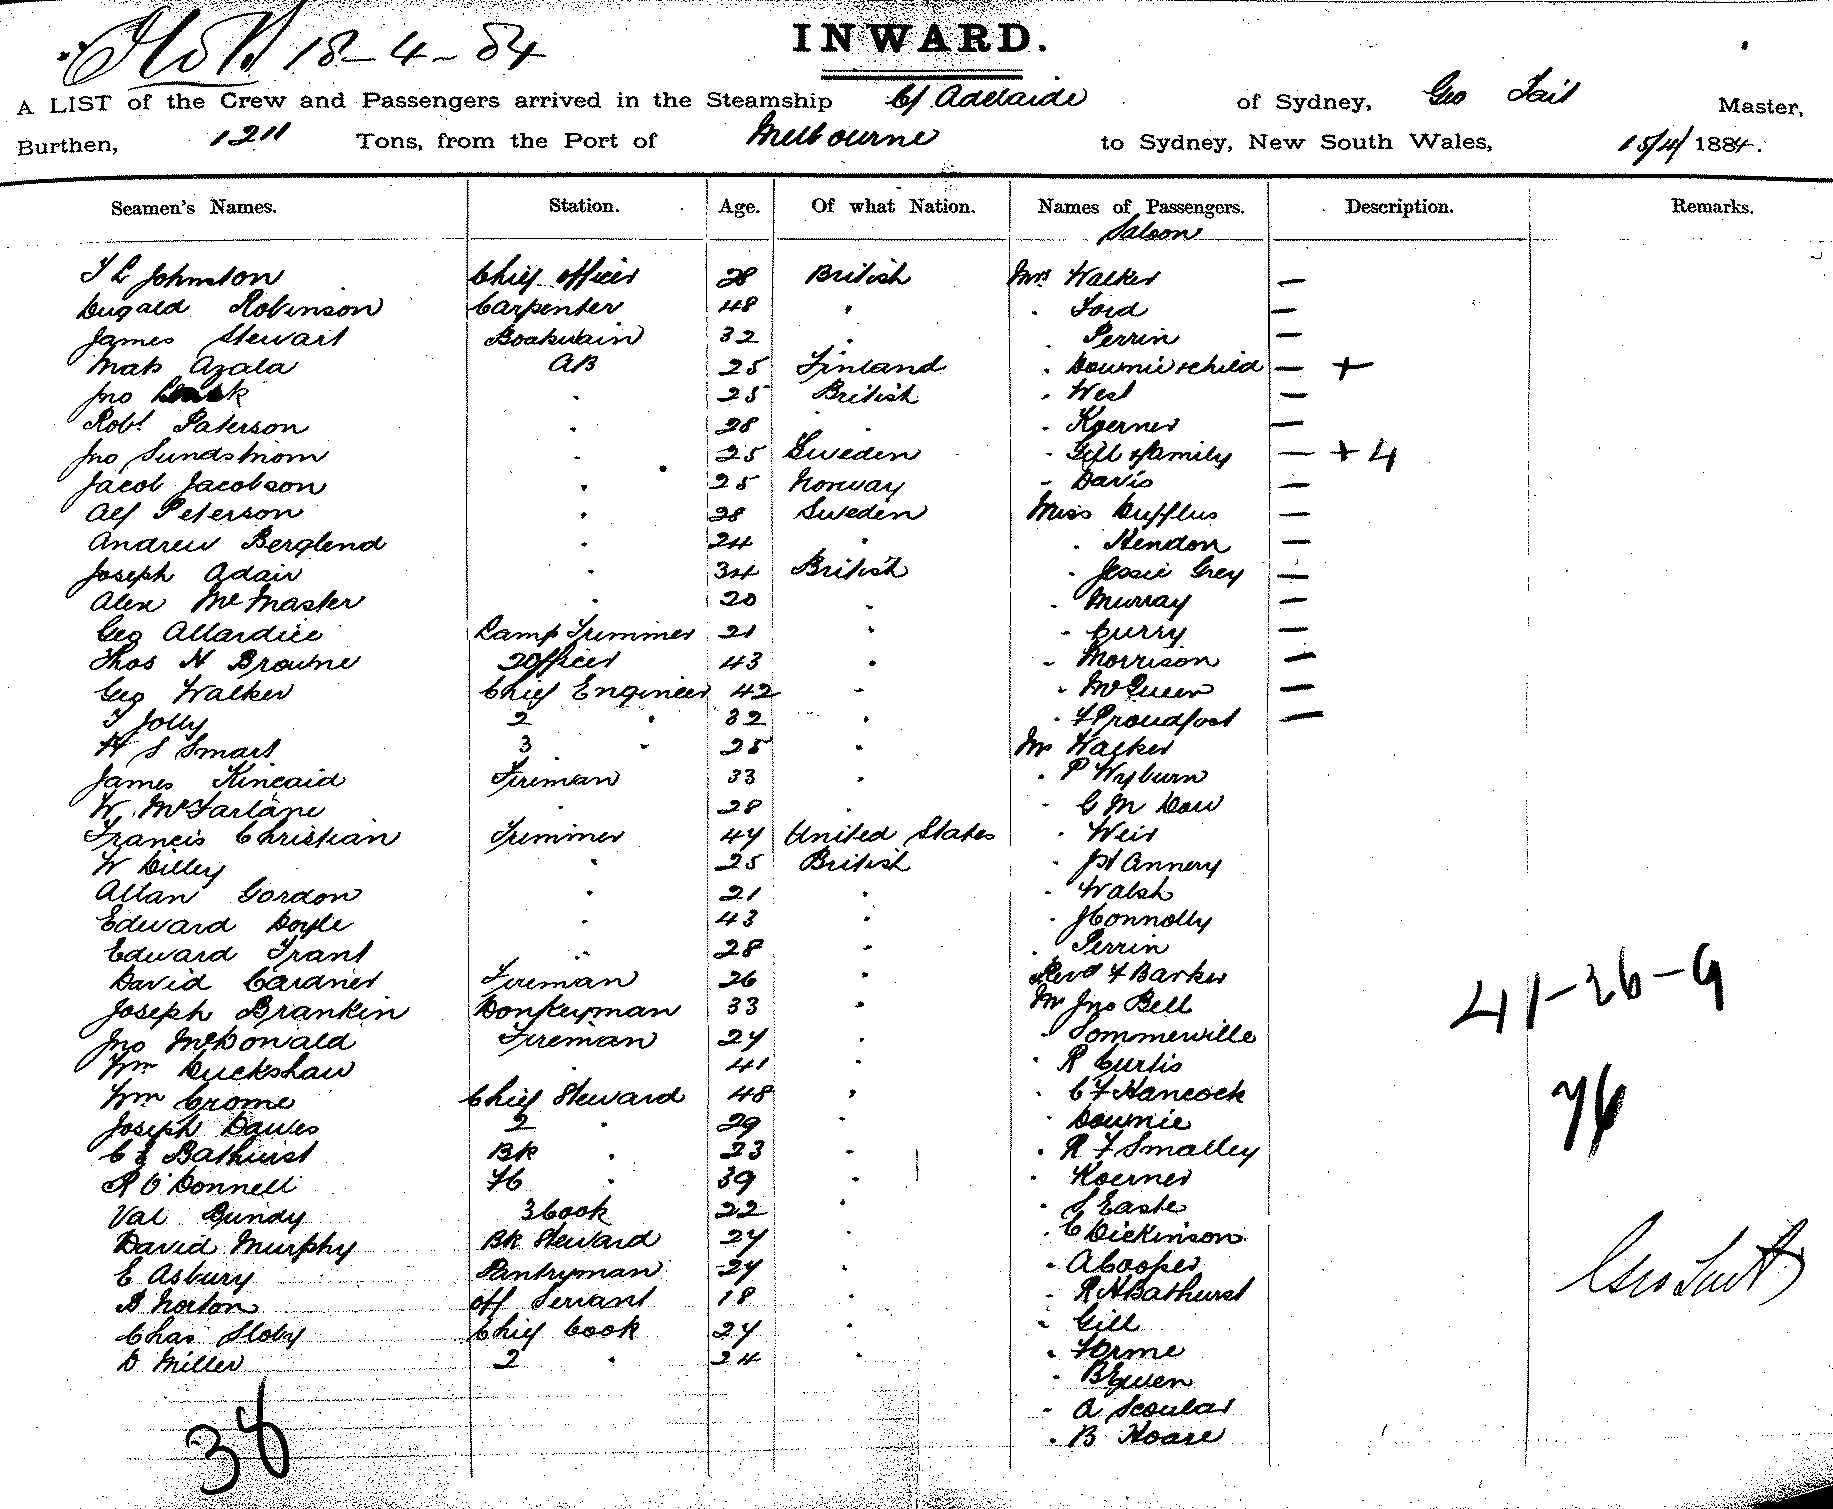 18-4-84
INWARD.
A LIST of the Crew and Passengers arrived in the Steamship Cy Adelaide of Sydney, Geo Tait Master,
Burthen, 1211 Tons, from the Port of Melbourne to Sydney, New South Wales, 15/4/1884.
Seamen's Names. Station. Age. Of what Nation. Names of Passengers. Description. Remarks.
Saloon
T L Johnston Chief officer 28 British Mrs Walker —
Dugald Robinson Carpenter 48 " " Ford —
James Stewart Boatswain 32 " " Perrin —
Mats Azala AB 25 Finland " Downie & child — +
Jno " 25 British " West —
Robt Paterson " 28 " " Koerner —
Jno Sundstrom " 25 Sweden " Gill & family — + 4
Jacob Jacobson " 25 Norway " Davis —
Alf Peterson " 28 Sweden Miss Duffus —
Andrew Berglend " 24 " " Kendon —
Joseph Adair " 34 British " Jessie Grey —
Alex McMaster " 20 " " Murray —
Geo Allardice Lamp Trimmer 21 " " Curry —
Thos H Browne 2 Officer 43 " " Morrison —
Geo Walker Chief Engineer 42 " " McQueen —
T Jolly 2 " 32 " " F Proudfoot —
H S Smart 3 " 25 " Mr Walker
James Kincaid Fireman 33 " " P Wyburn
W McFarlane " 28 " " G M Dow
Francis Christian Trimmer 47 United States " Weir
W Dilley " 25 British " Annery
Allan Gordon " 21 " " Walsh
Edward Doyle " 43 " " J Connolly
Edward Trant " 28 " " Perrin
David Cardner Fireman 26 " Revd F Barker
Joseph Brankin Donkeyman 33 " Mr Jno Bell
41-26-9
Jno McDonald Fireman 27 " " Sommerville
Wm Duckshaw " 41 " " R Curtis
Wm Crome Chief Steward 48 " " C F Hancock
76
Joseph Dawes 2 " 29 " " Downie
C E Bathurst BK " 23 " " R F Smalley
R O'Donnell FC " 39 " " Koerner
Val Bundy 3 Cook 22 " " S Easte
David Murphy BK Steward 27 " " C Dickinson
E Asbury Pantryman 27 " " A Cooper
Geo Tait
A Norton off Servant 18 " " R H Bathurst
Chas Sloby Chief Cook 27 " " Gill
D Miller 2 " 24 " " Horme
" B Ewen
" A Scoular
" B Hoare
38